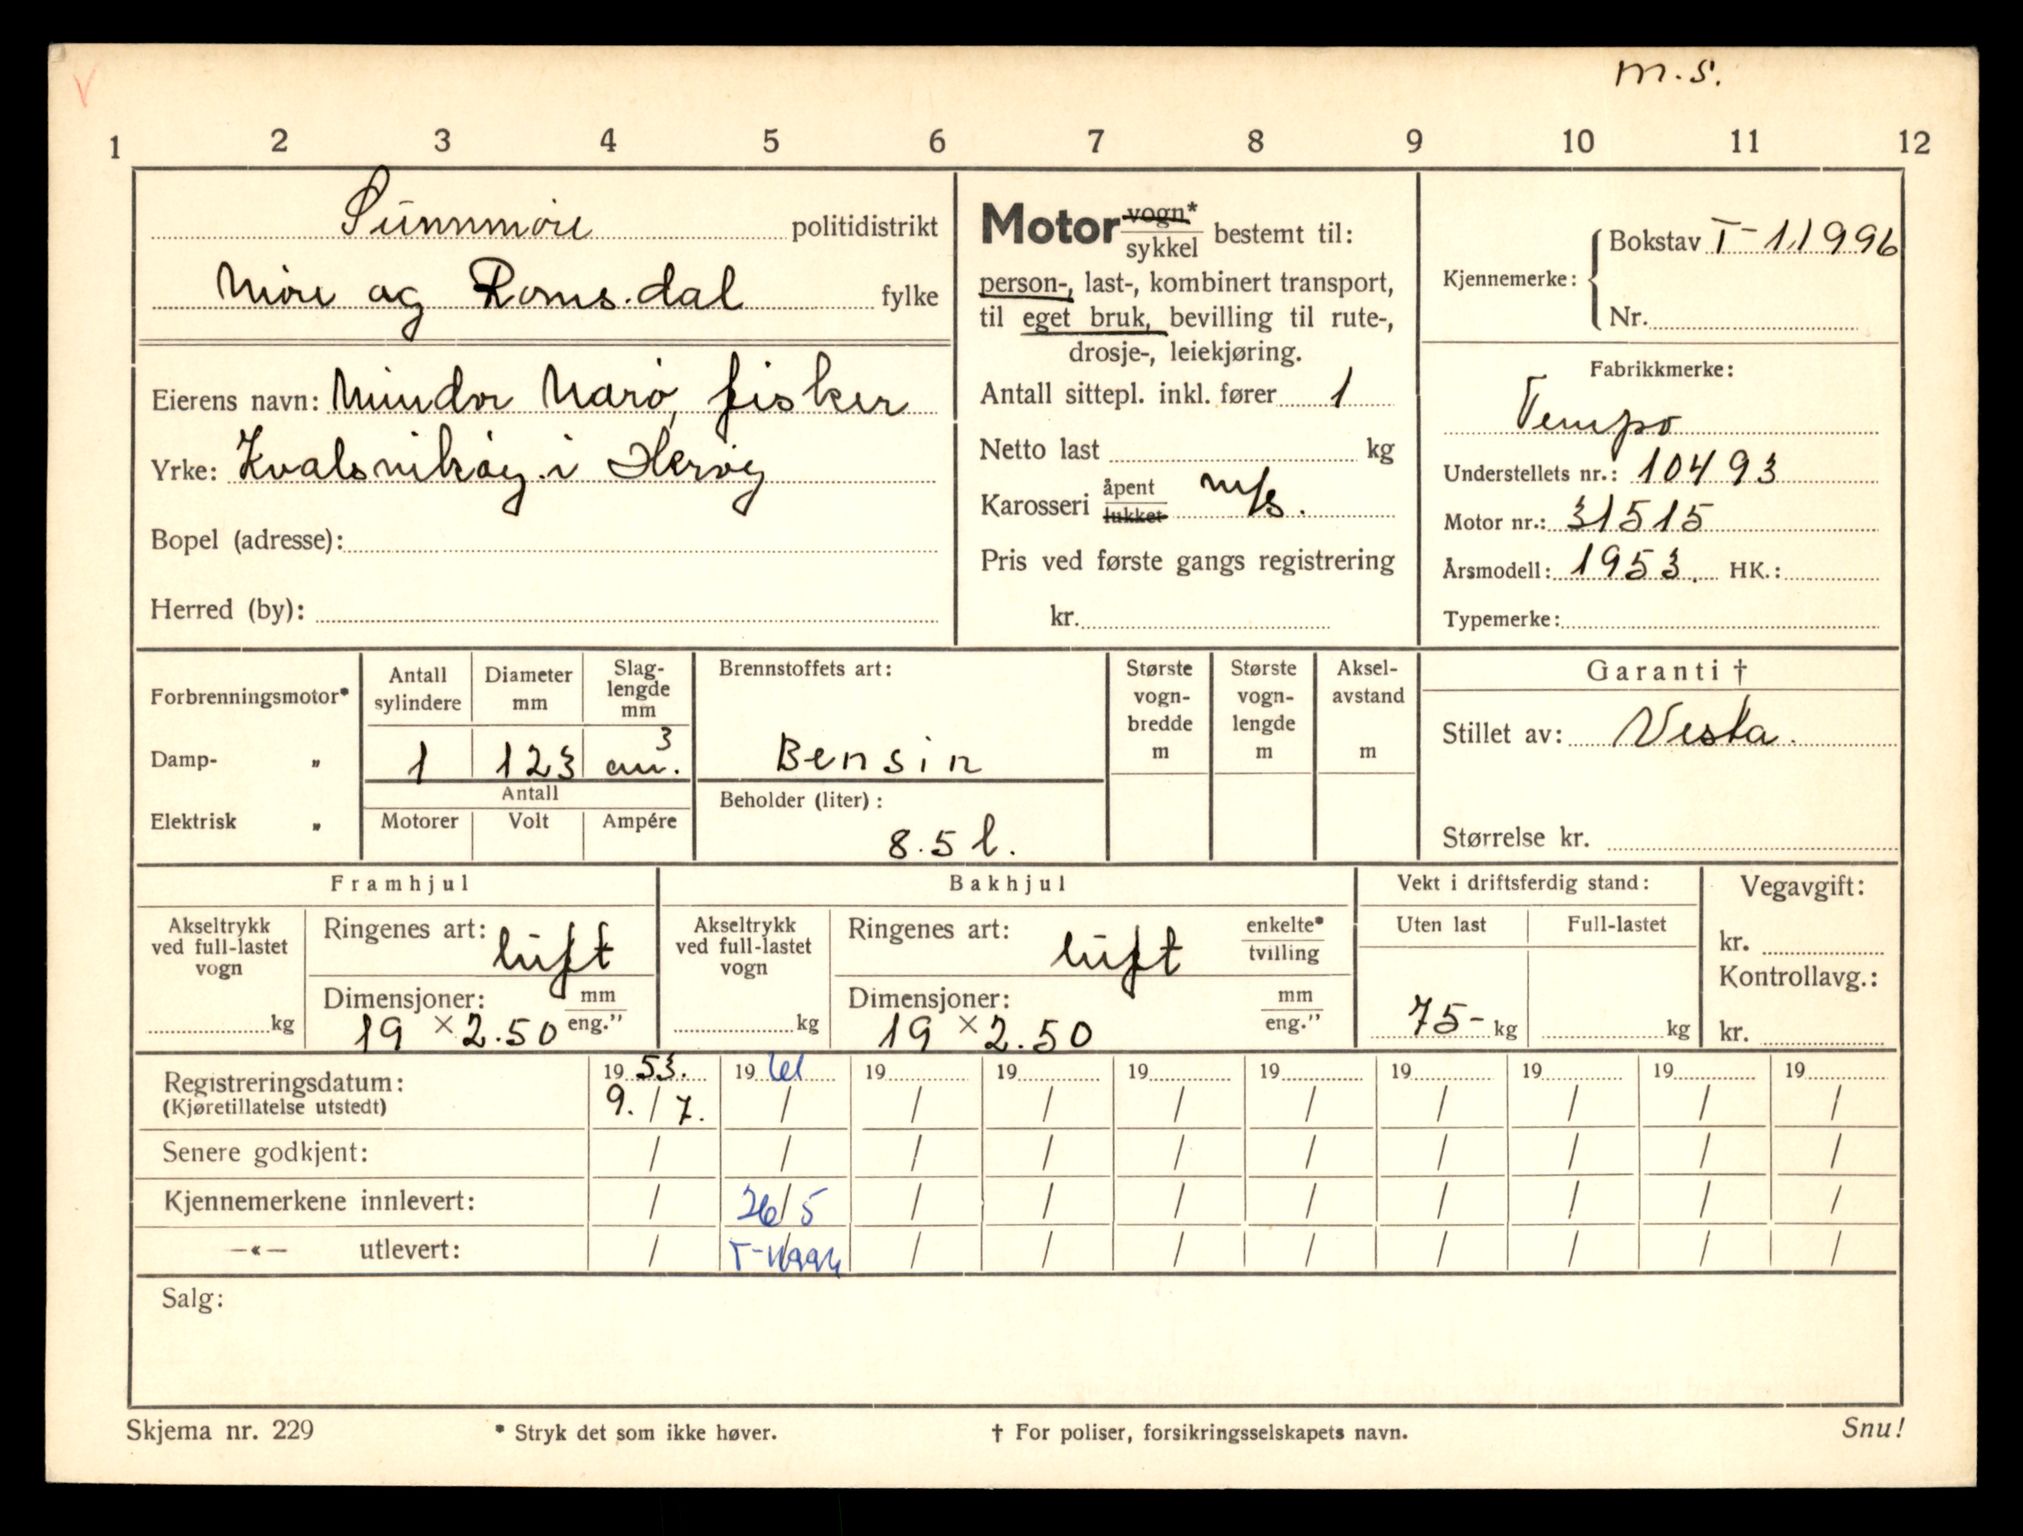 m.s.
1 2 3 4 5 6 7 8 9 10 11 12
Sunnmøre politidistrikt
Møre og Romsdal fylke
Eierens navn: Mindor Marø, fisker
Yrke: i Herøy
Bopel (adresse):
Herred (by):
Motor vogn* / sykkel bestemt til:
person-, last-, kombinert transport,
til eget bruk, bevilling til rute-,
drosje-, leiekjøring.
Antall sittepl. inkl. fører 1
Netto last kg
Karosseri åpent / lukket m/s.
Pris ved første gangs registrering
kr.
Kjennemerke: Bokstav T-11996
Nr.
Fabrikkmerke:
Tempo
Understellets nr.: 10493
Motor nr.: 31515
Årsmodell: 1953. HK.:
Typemerke:
Forbrenningsmotor*
Damp- „
Elektrisk „
Antall sylindere Diameter mm Slag-lengde mm
1 123 cm.3
Antall
Motorer Volt Ampére
Brennstoffets art:
Bensin
Beholder (liter):
8.5 l.
Største vogn-bredde m
Største vogn-lengde m
Aksel-avstand m
Garanti †
Stillet av: Vesta.
Størrelse kr.
Framhjul
Akseltrykk ved full-lastet vogn kg
Ringenes art: luft
Dimensjoner: mm / eng."
19 × 2.50
Bakhjul
Akseltrykk ved full-lastet vogn kg
Ringenes art: luft enkelte* / tvilling
Dimensjoner: mm / eng."
19 × 2.50
Vekt i driftsferdig stand:
Uten last Full-lastet
75- kg kg
Vegavgift:
kr.
Kontrollavg.:
kr.
Registreringsdatum: 19 53. 19 61 19 19 19 19 19 19 19 19
(Kjøretillatelse utstedt) 9. / 7. / / / / / / / / /
Senere godkjent: / / / / / / / / / /
Kjennemerkene innlevert: / 26/5 / / / / / / / /
—«— utlevert: / T-11996 / / / / / / / /
Salg:
Skjema nr. 229 * Stryk det som ikke høver. † For poliser, forsikringsselskapets navn. Snu!